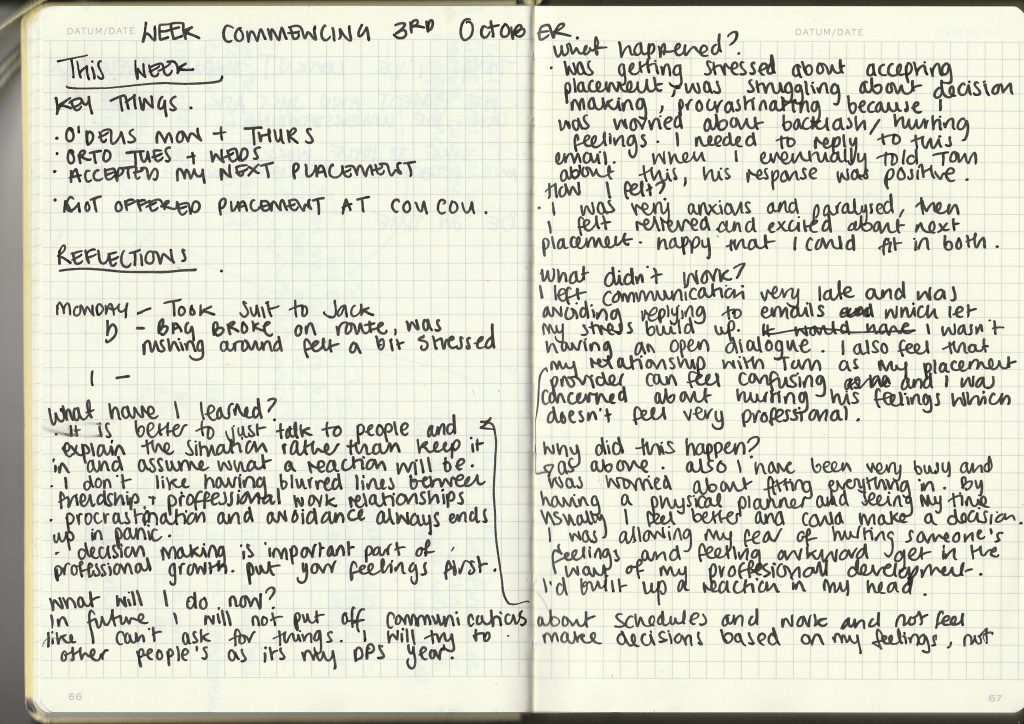 DATUM/DATE WEEK COMMENCING 3RD OCTOBER.
THIS WEEK
KEY THINGS.
· O'DELLS MON + THURS
· ORTO TUES + WEDS
· ACCEPTED MY NEXT PLACEMENT
· GOT OFFERED PLACEMENT AT COU COU.
REFLECTIONS
MONDAY - TOOK SUIT TO JACK
- BAG BROKE on route, was
rushing around felt a bit stressed
1 -
What have I learned?
· It is better to just talk to people and
explain the situation rather than keep it
in and assume what a reaction will be.
· I don't like having blurred lines between
friendship + proffessional work relationships
· procrastination and avoidance always ends
up in panic.
· decision making is important part of
professional growth. put your feelings first.
What will I do now?
In future, I will not put off communications
like I can't ask for things. I will try to
other people's as its my DPS year.
66
DATUM/DATE
What happened?
· Was getting stressed about accepting
placement, was struggling about decision
making, procrastinating because I
was worried about backlash/hurting
feelings. I needed to reply to this
email. When I eventually told Tom
about this, his response was positive.
How I felt?
· I was very anxious and paralysed, then
I felt relieved and excited about next
placement. happy that I could fit in both.
What didn't work?
I left communication very late and was
avoiding replying to emails and which let
my stress build up. It would have I wasn't
having an open dialogue. I also feel that
my relationship with Tom as my placement
provider can feel confusing and I was
concerned about hurting his feelings which
doesn't feel very professional.
Why did this happen?
as above. also I have been very busy and
was worried about fitting everything in. By
having a physical planner and seeing my time
visually I feel better and could make a decision.
I was allowing my fear of hurting someone's
feelings and feeling awkward get in the
way of my proffesional development.
I'd built up a reaction in my head.
about schedules and work and not feel
make decisions based on my feelings, not
67